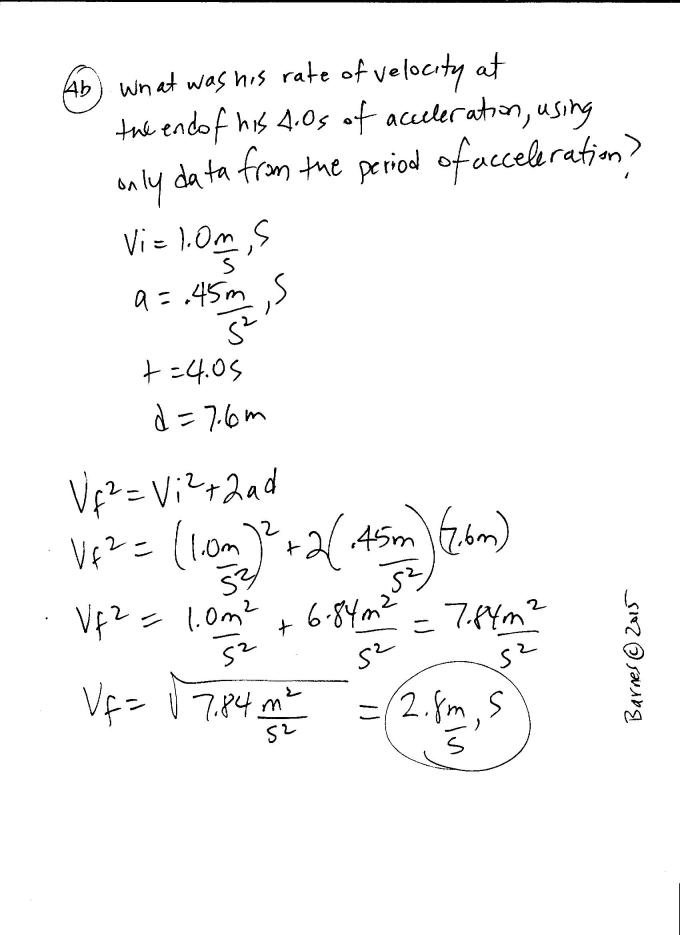 4b) What was his rate of velocity at
the end of his 4.0s of acceleration, using
only data from the period of acceleration?
Vi = 1.0 m/s, S
a = .45 m/s², S
t = 4.0s
d = 7.6m
Vf² = Vi² + 2ad
Vf² = (1.0m/s²)² + 2(.45m/s²)(7.6m)
Vf² = 1.0m²/s² + 6.84m²/s² = 7.84m²/s²
Vf = √7.84 m²/s² = 2.8m/s, S
Barnes © 2015